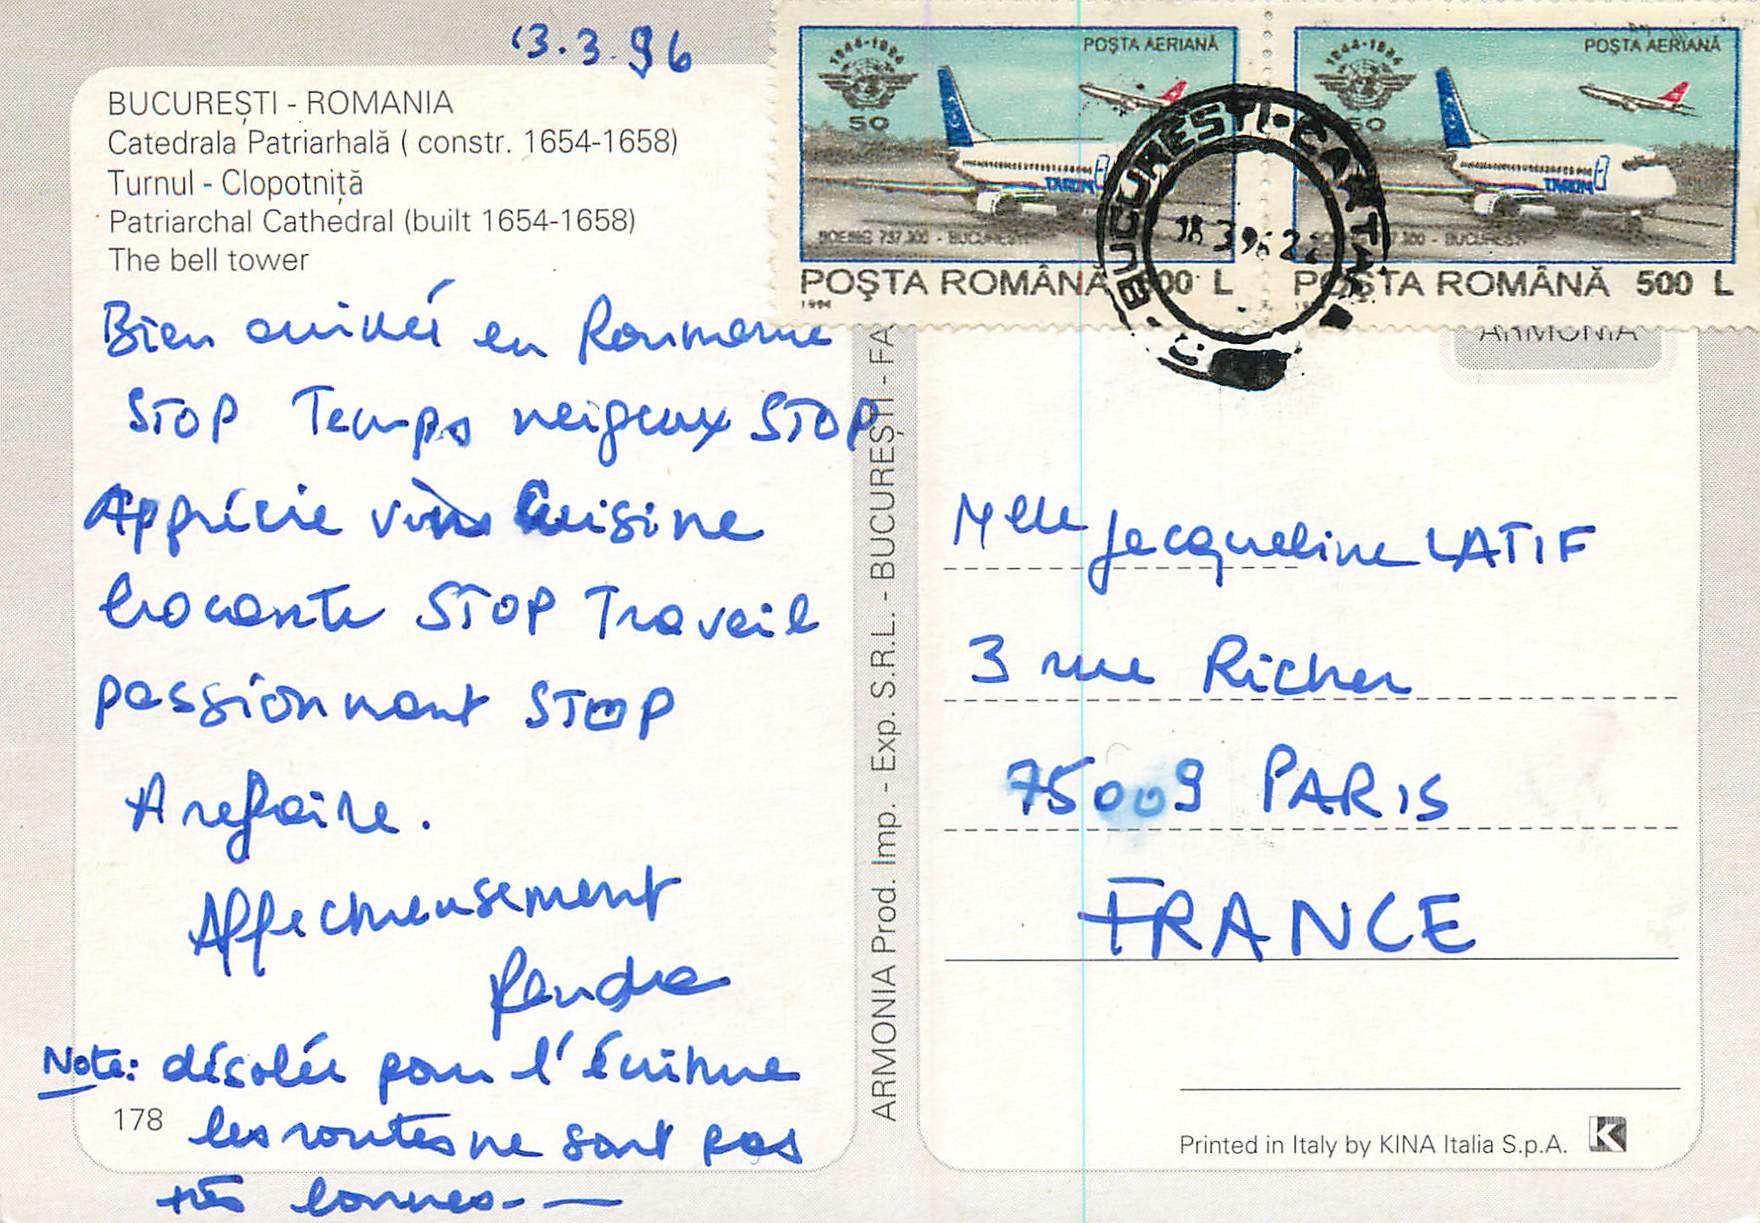 13.3.96
BUCUREȘTI - ROMANIA
Catedrala Patriarhală ( constr. 1654-1658)
Turnul - Clopotniță
Patriarchal Cathedral (built 1654-1658)
The bell tower
Bien arrivés en Roumanie
STOP Temps neigeux STOP
Apprécie vins Cuisine
STOP Travail
passionnant STOP
A refaire.
Affectueusement
Note: désolée pour l'écriture
les routes ne sont pas
très bonnes - —
178
ARMONIA Prod. Imp. - Exp. S.R.L. - BUCUREȘTI - FA
1944-1994
50
POȘTA AERIANĂ
TAROM
BOEING 737.300 - BUCUREȘTI
POȘTA ROMÂNĂ 500 L
1994
1944-1994
50
POȘTA AERIANĂ
TAROM
300 - BUCUREȘTI
POȘTA ROMÂNĂ 500 L
BUCUREȘTI CARTA
18 3 96 22
ARMONIA
Melle Jacqueline LATIF
3 rue Richer
75009 PARIS
FRANCE
Printed in Italy by KINA Italia S.p.A.
K